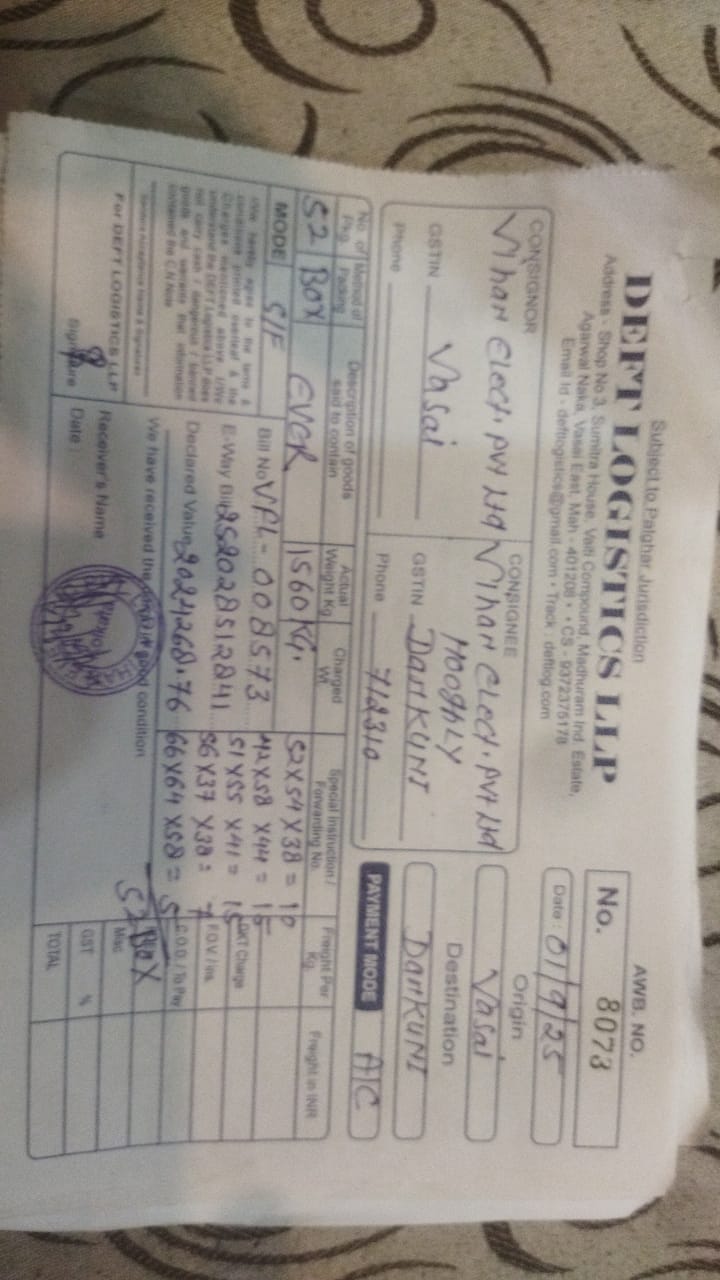 Subject to Palghar Jurisdiction
DEFT LOGISTICS LLP
Address - Shop No 3, Sumitra House, Valti Compound, Madhuram Ind. Estate,
Agarwal Naka, Vasai East, Mah - 401208 • CS - 9372375178
Email Id - deftlogistics@gmail.com • Track : deftlog.com
AWB. NO.
No. 8073
Date : 01/9/25
CONSIGNOR
Vihan Elect. PVt Ltd
Vasai
GSTIN
Phone
CONSIGNEE
Vihan Elect. PVt Ltd
HooghLy
GSTIN DanKUNI
Phone 712310
Origin
Vasai
Destination
DanKUNI
PAYMENT MODE A/C
No. of Pkg. Method of Packing Description of goods said to contain Actual Weight Kg. Charged Wt. Special Instruction / Forwarding No. Freight Per Kg. Freight in INR
52 BOX EVER 1560 KG. 52X54X38 = 10
MODE S/F Bill No VPL-008573 42X58X44 = 15
E-Way Bill 252028512841 51X55X41 = 15 DKT Charge
56X37X38 = 7 F.O.V / Ins.
Declared Value 2024268.76 66X64X58 = 5 C.O.D. / To Pay
52 BOX
I/We hereby agree to the terms &
conditions printed overleaf & the
Charges mentioned above. I/We
understand the DEFT Logistics LLP does
not carry cash / dangerous / banned
goods and warrants that information
contained the C.N.Note
We have received the goods in good condition
Misc
For DEFT LOGISTICS LLP
Receiver's Name
GST %
Signature
Date :
TOTAL